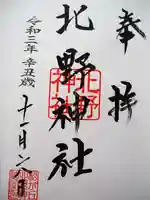 奉拝
北野神社
北野
神社
令和三年 辛丑歳
十二月六